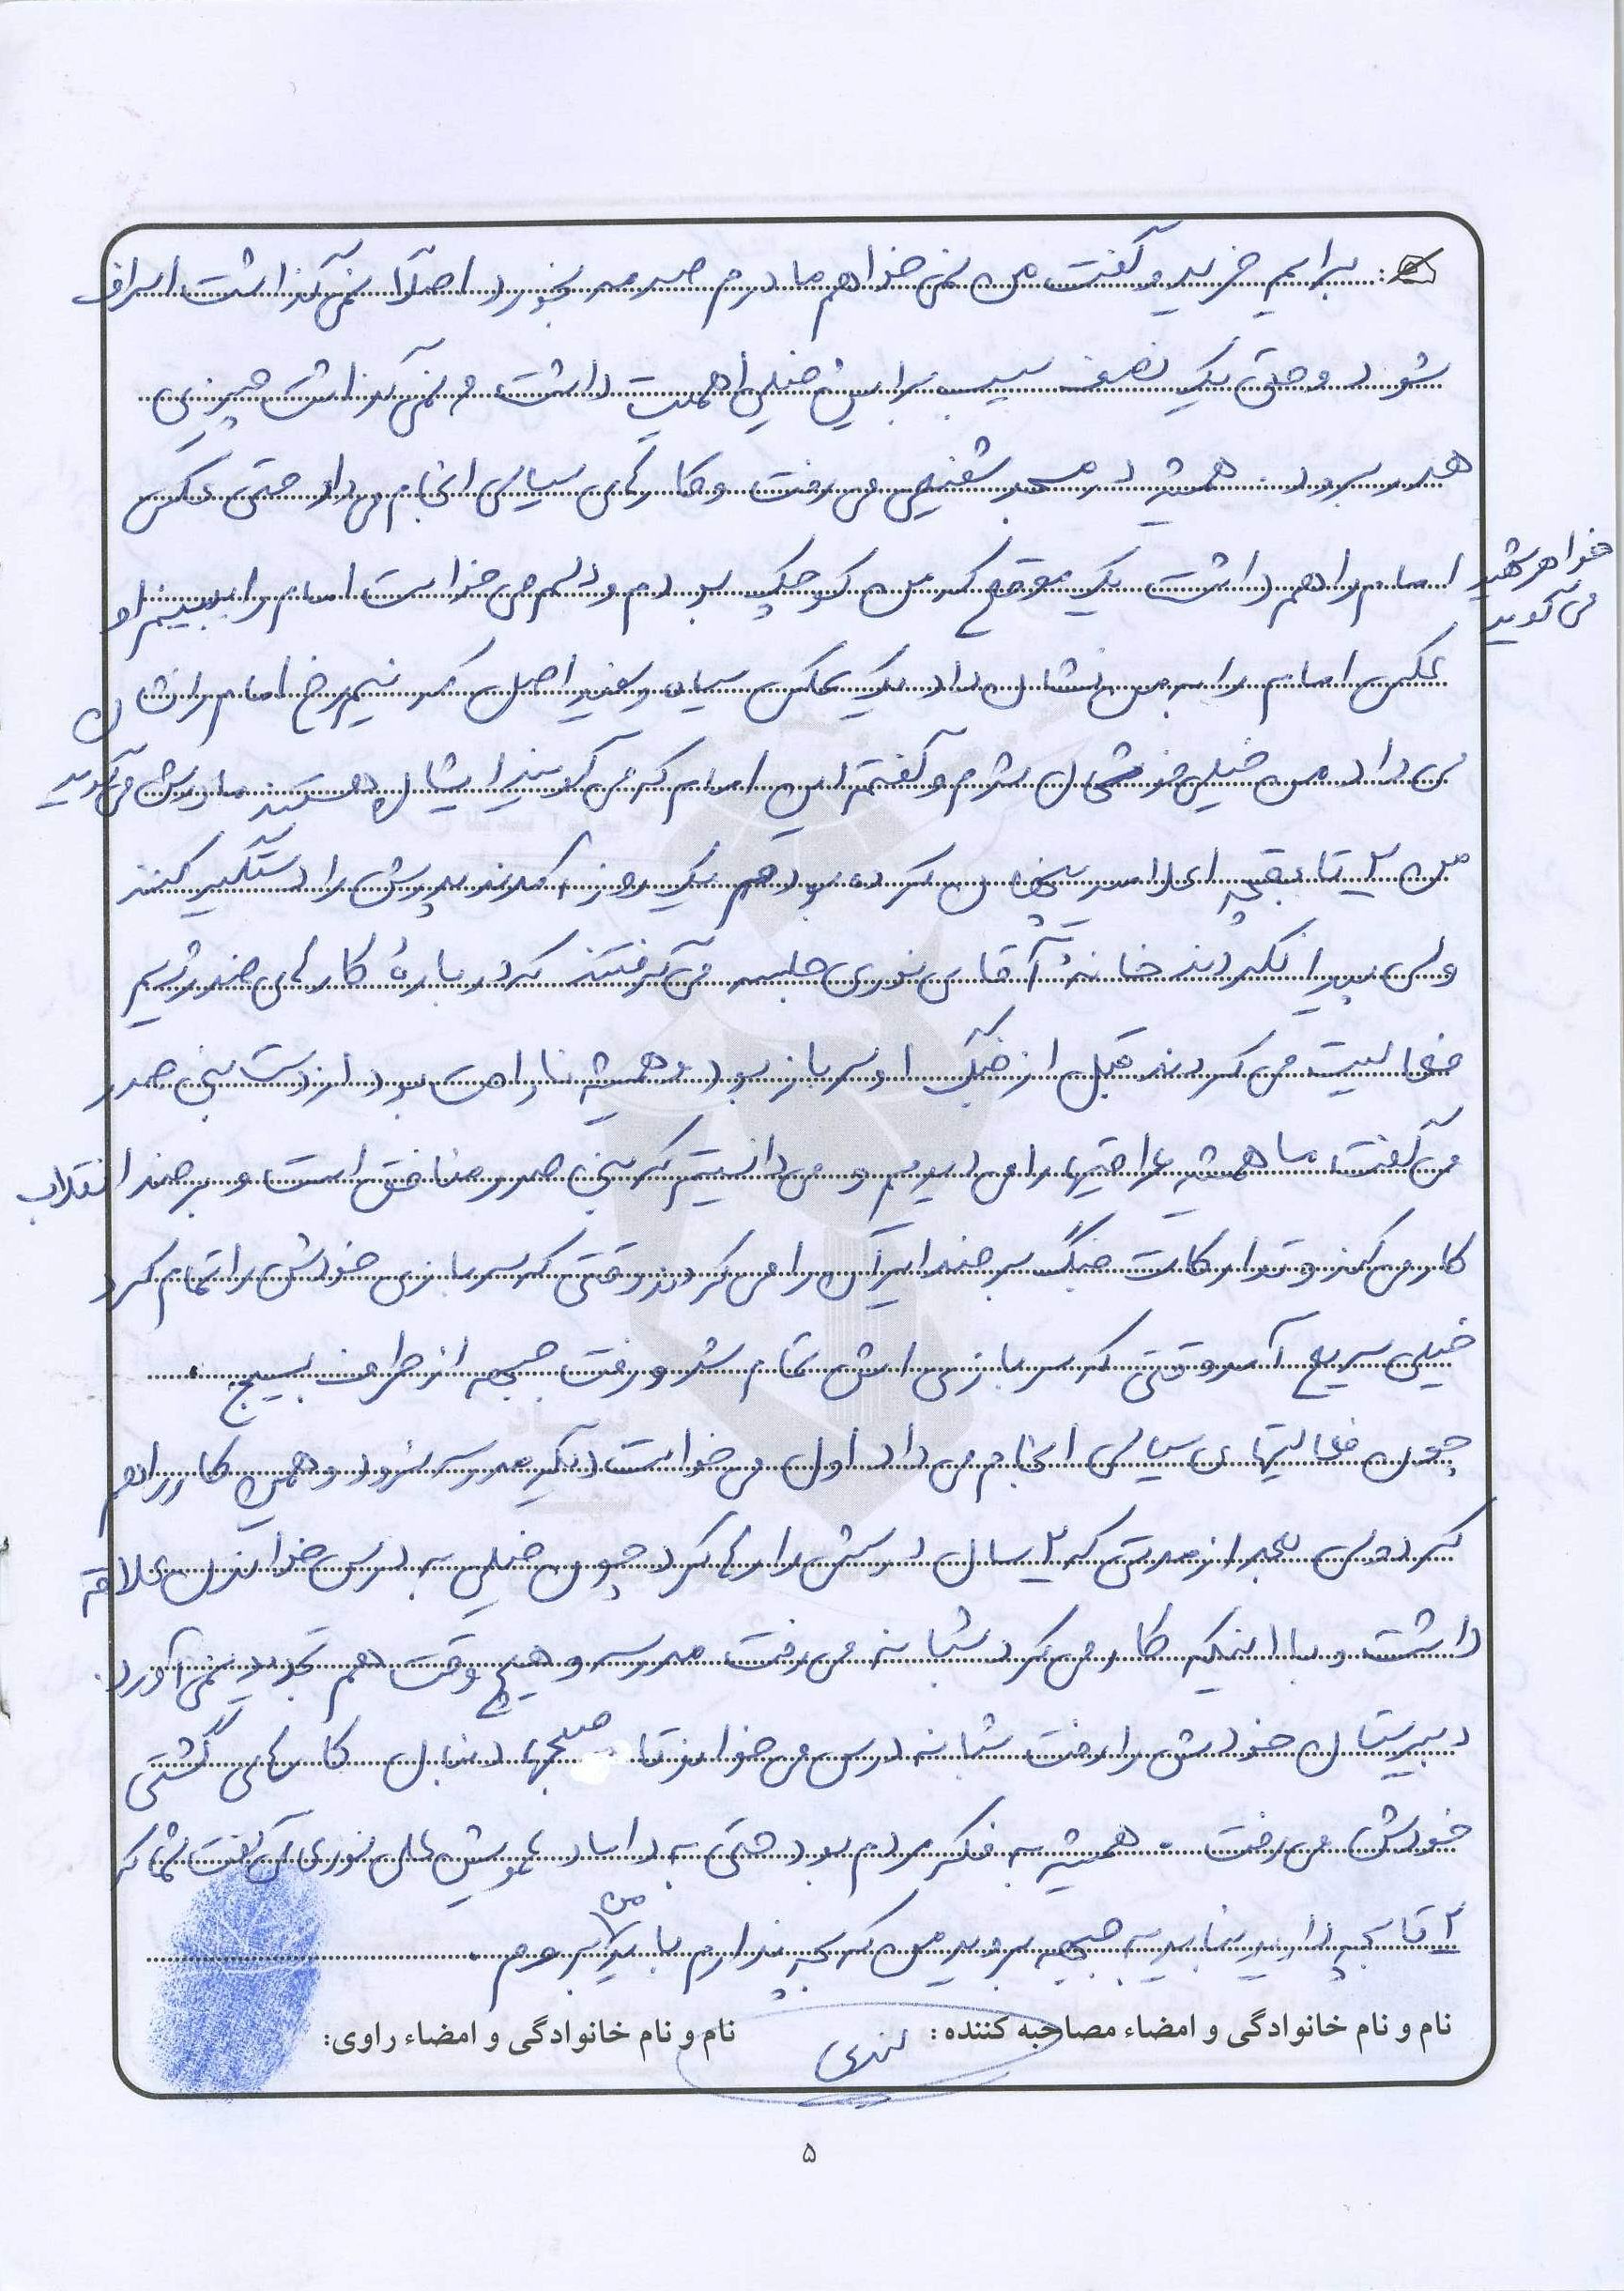 برایم خرید و گفت من نمی خواهم مادرم صدمه بخورد اصلاً نمی گذاشت اسراف
شود و حتی یک نصف سیب برایش خیلی اهمیت داشت و نمی گذاشت چیزی
هدر برود. همیشه در مسجد شفیعی می رفت و کارهای سیاسی انجام می داد حتی عکس
خواهر شهید می گوید
امام را هم داشت یک موقع که من کوچک بودم و دلم می خواست امام را ببینم او
عکس امام را به من نشان داد یک عکس سیاه و سفید اصل که نیم رخ امام را نشان
می داد من خیلی خوشحال شدم و گفتم این امام که می گویند ایشان هستند مادرش می گوید
من ۲ تا بقچه اعلامیه پنهان کرده بودم یک روز آمدند پدرش را دستگیر کنند
ولی پیدا نکردند خانهٔ آقای نوری جلسه می گرفتند که دربارهٔ کارهای ضد رژیم
فعالیت می کردند قبل از جنگ او سرباز بود و همیشه ناراحت بود از دست بنی صدر
می گفت ما همیشه عراقیها را می دیدیم و می دانستیم که بنی صدر منافق است و بر ضد انقلاب
کار می کند و تدارکات جنگ بر ضد ایران را می کردند وقتی که سربازی خودش را تمام کرد
خیلی سریع آمد وقتی که سربازی اش تمام شد و رفت جبهه از طرف بسیج .
چون فعالیتهای سیاسی انجام می داد اول می خواست دیگر مدرسه نرود و همین کار را هم
کرد ولی بعد از مدتی که ۲ سال درسش را رها کرد چون خیلی به درس خواندن علاقه
داشت و با اینکه کار می کرد شبانه می رفت مدرسه و هیچ وقت هم تجدید نمی آورد.
دبیرستان خودش را رفت شبانه درس می خواند تا صبحها دنبال کارهای گشتی
خودش می رفت . همیشه به فکر مردم بود حتی به داماد عمویش علی نوری می گفت شما که
۲ تا بچه دارید نباید به جبهه بروید من که بچه ندارم باید من بروم .
نام و نام خانوادگی و امضاء مصاحبه کننده :
نام و نام خانوادگی و امضاء راوی:
۵